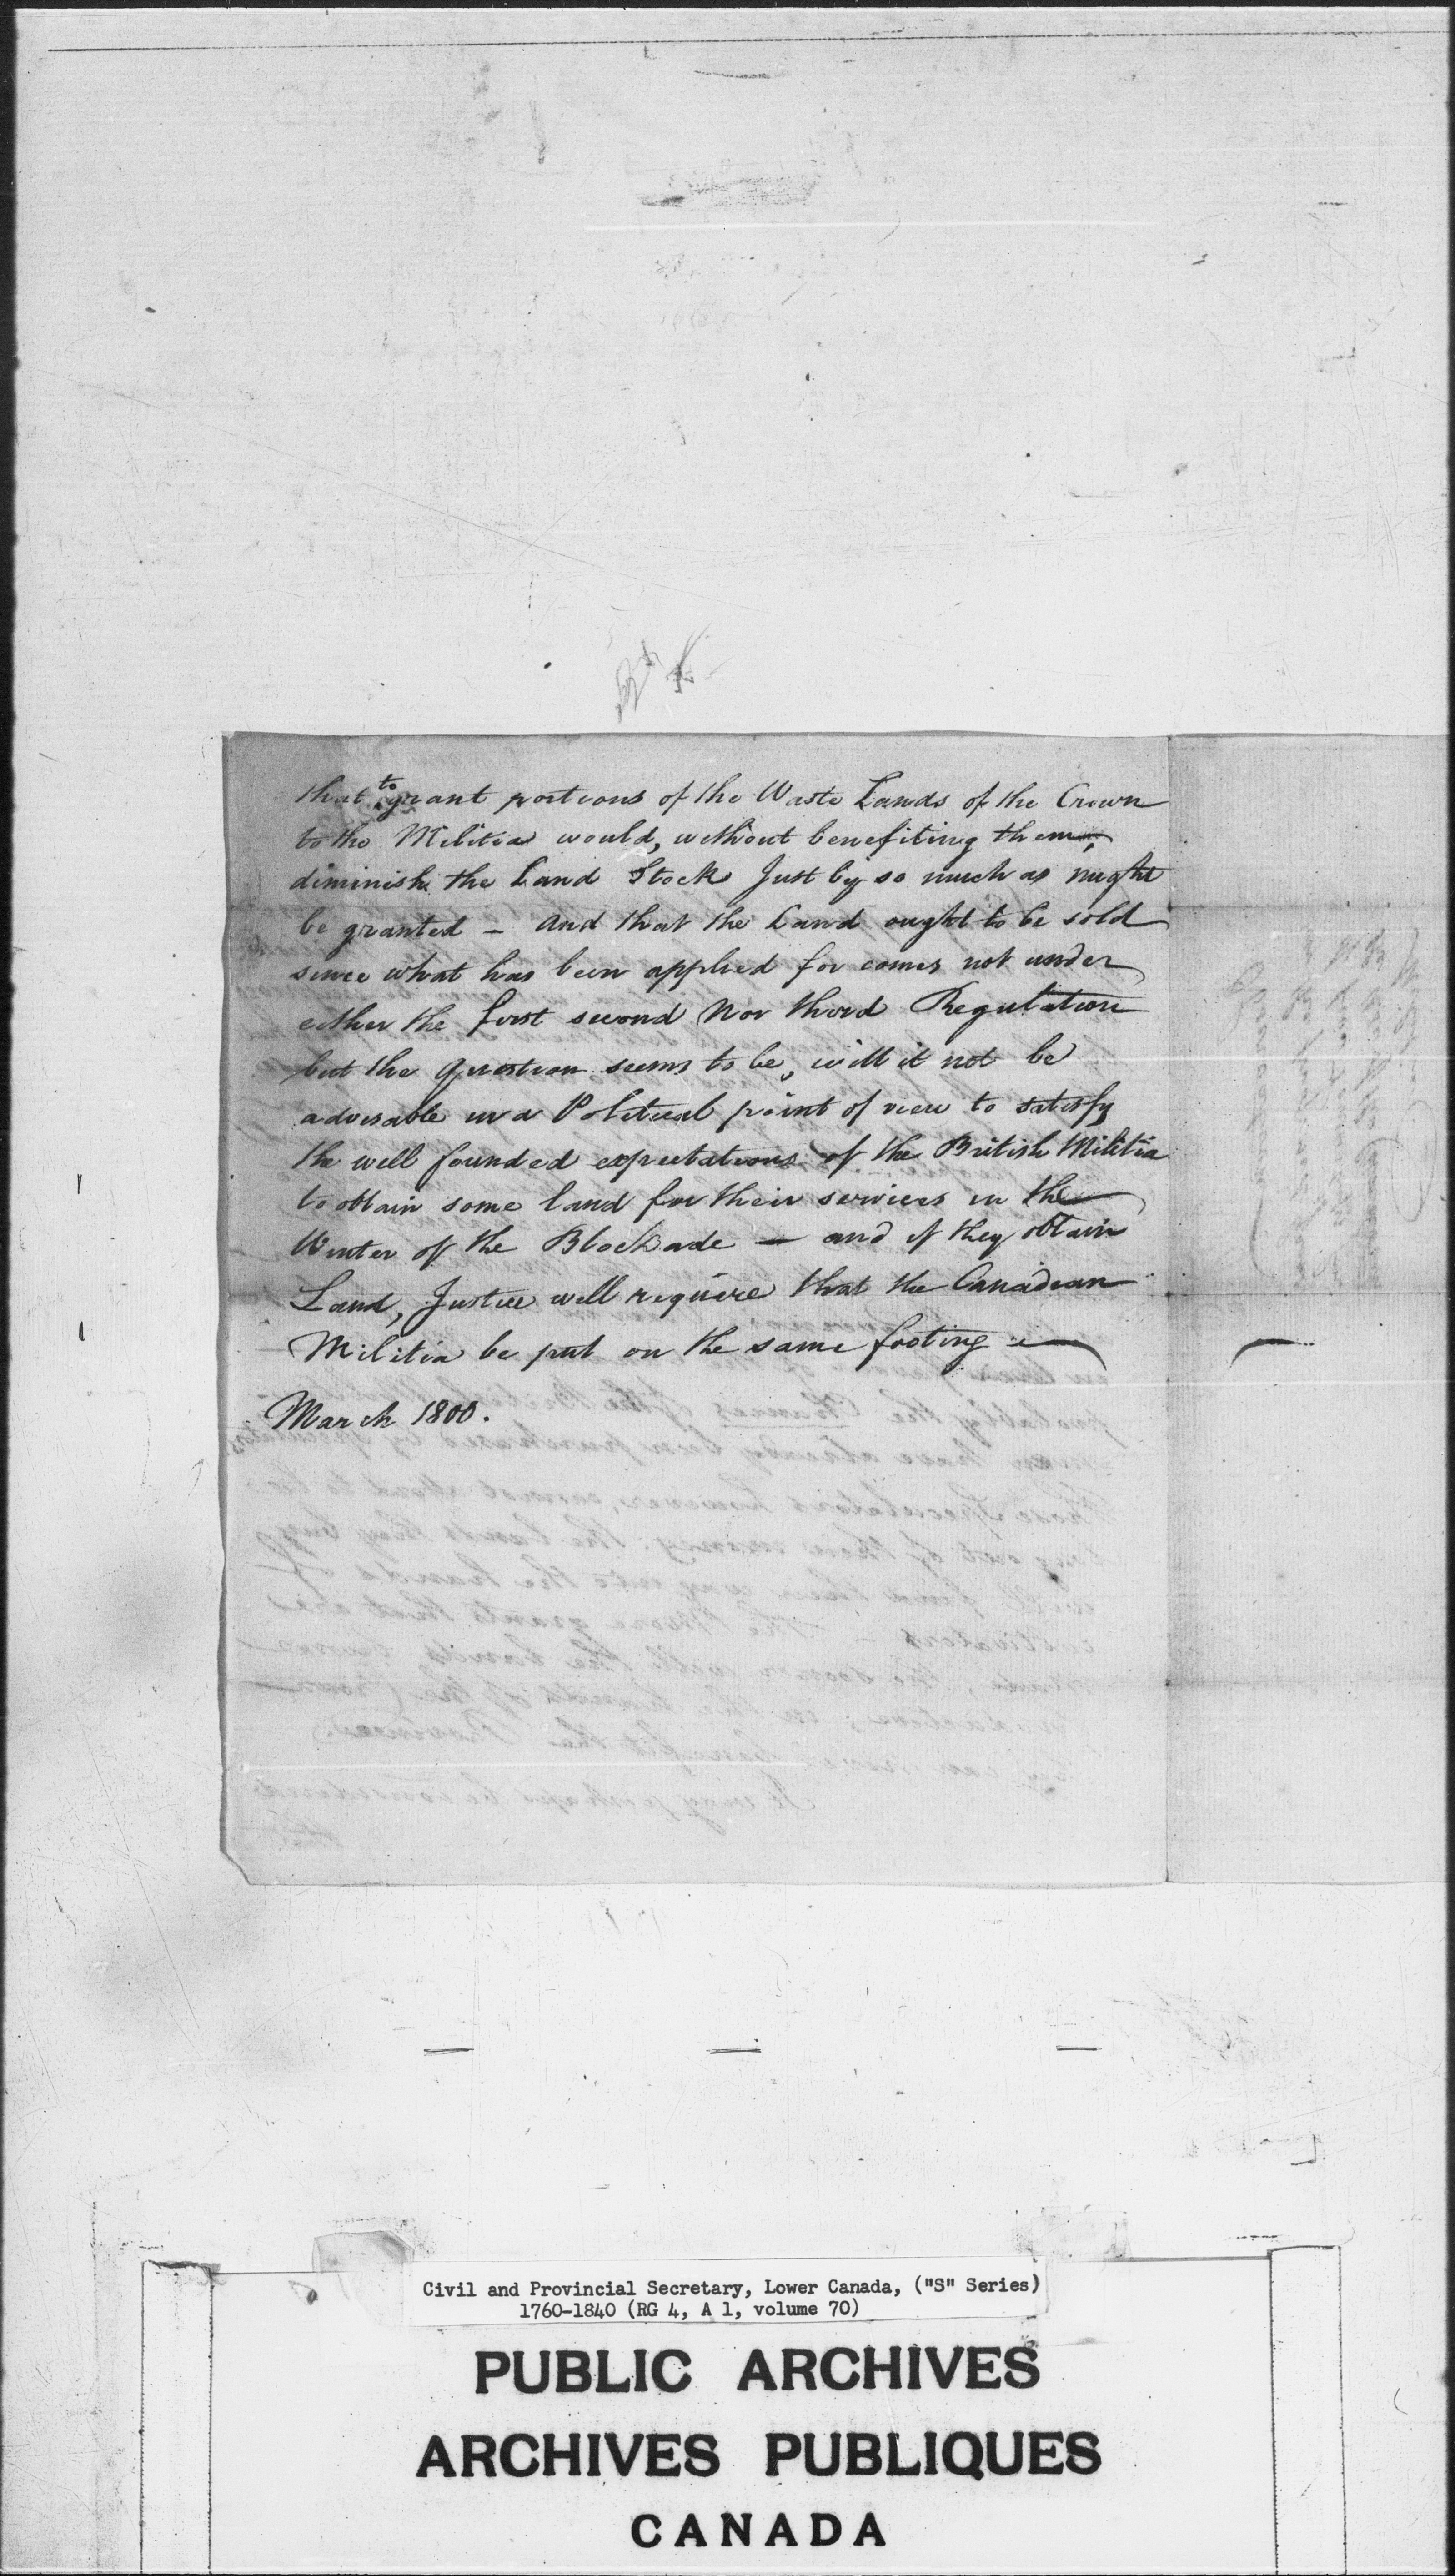 that to grant portions of the Waste Lands of the Crown
to the Militia would, without benefiting them,
diminish the Land Stock Just by so much as might
be granted – and that the Land ought to be sold
since what has been applied for comes not under
either the first second Nor third Regulation
but the question seems to be, will it not be
advisable in a Political point of view to satisfy
the well founded expectations of the British Militia
to obtain some land for their services in the
Winter of the Blockade — and if they obtain
Land, Justice will require that the Canadian
Militia be put on the same footing
March 1800.
Civil and Provincial Secretary, Lower Canada, ("S" Series)
1760-1840 (RG 4, A 1, volume 70)
PUBLIC ARCHIVES
ARCHIVES PUBLIQUES
CANADA